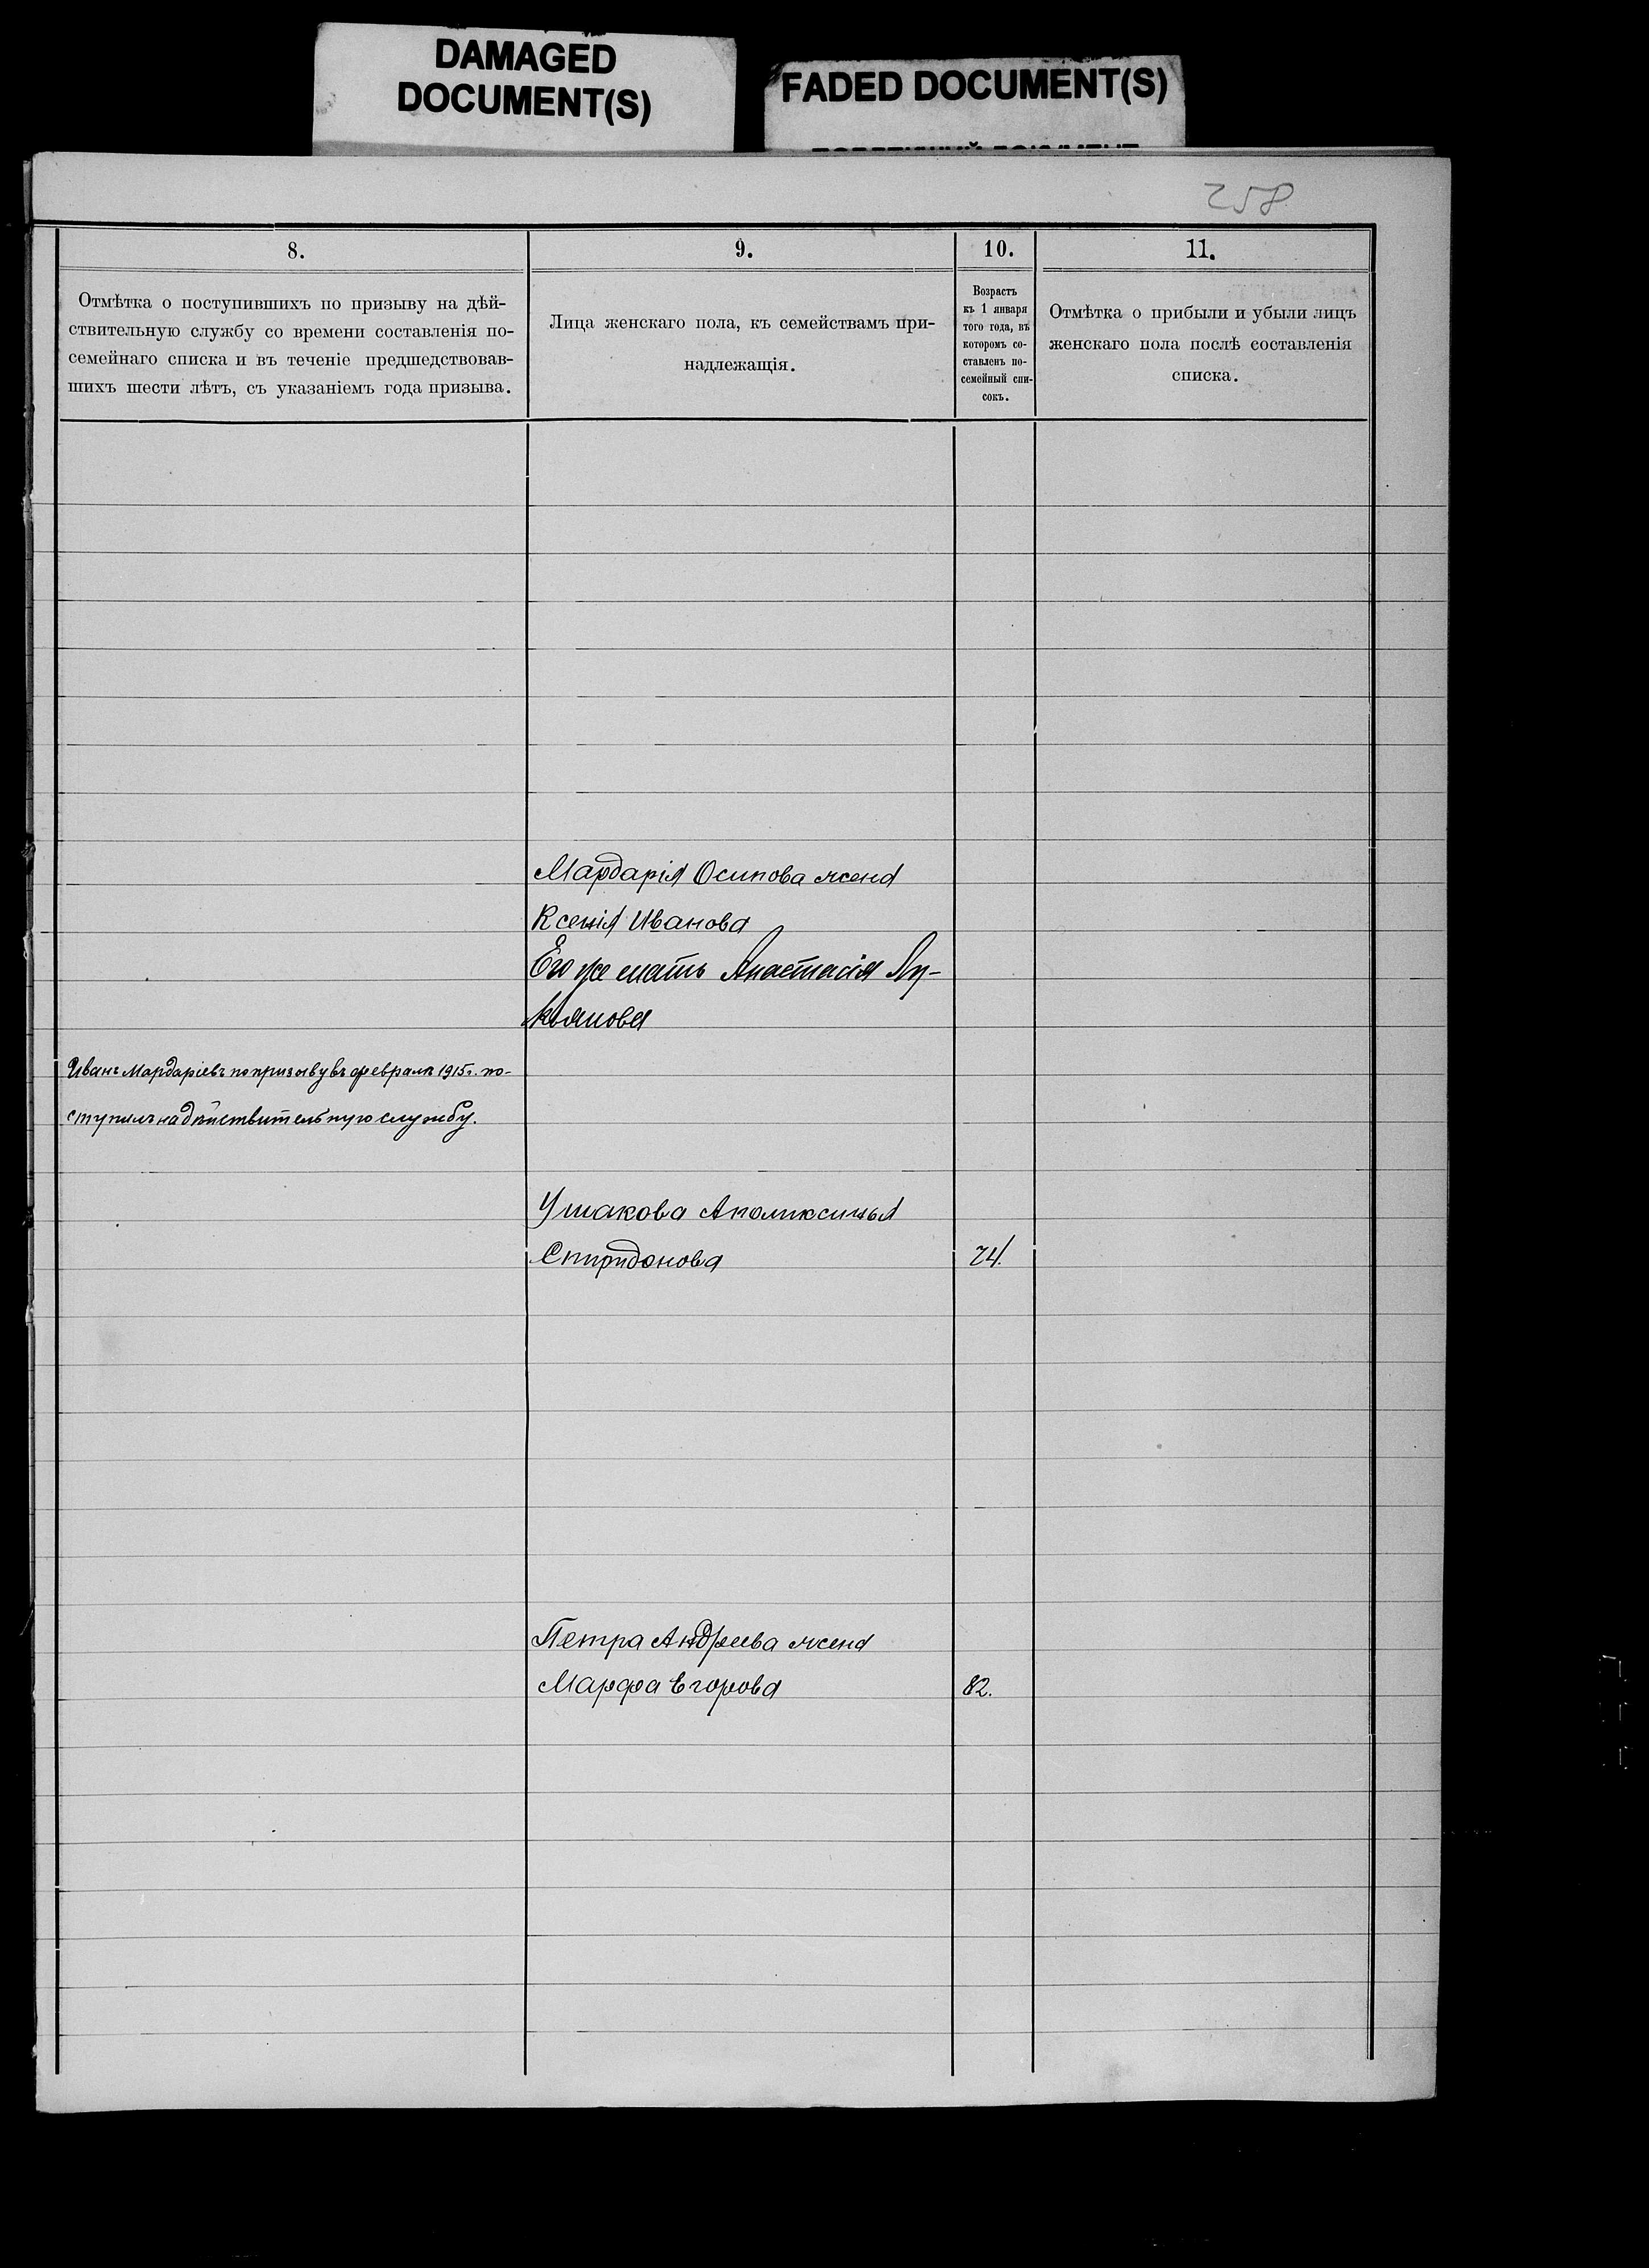 DAMAGED
DOCUMENT(S)
FADED DOCUMENT(S)
258
8.
9.
10.
11.
Отмѣтка о поступившихъ по призыву на дѣй-
ствительную службу со времени составленія по-
семейнаго списка и въ теченіе предшедствовав-
шихъ шести лѣтъ, съ указаніемъ года призыва.
Лица женскаго пола, къ семействамъ при-
надлежащія.
Возрастъ
къ 1 января
того года, въ
которомъ со-
ставленъ по-
семейный спи-
сокъ.
Отмѣтка о прибыли и убыли лицъ
женскаго пола послѣ составленія
списка.
Мардарія Осипова жена
Ксенія Иванова
Его же мать Анастасія Лу-
кьянова
Иванъ Мардаріевъ по призыву въ февралѣ 1915 г. по-
ступилъ на дѣйствительную службу.
Ушакова Аполиксинья
Спиридонова
74.
Петра Андреева жена
Марфа Егорова
82.